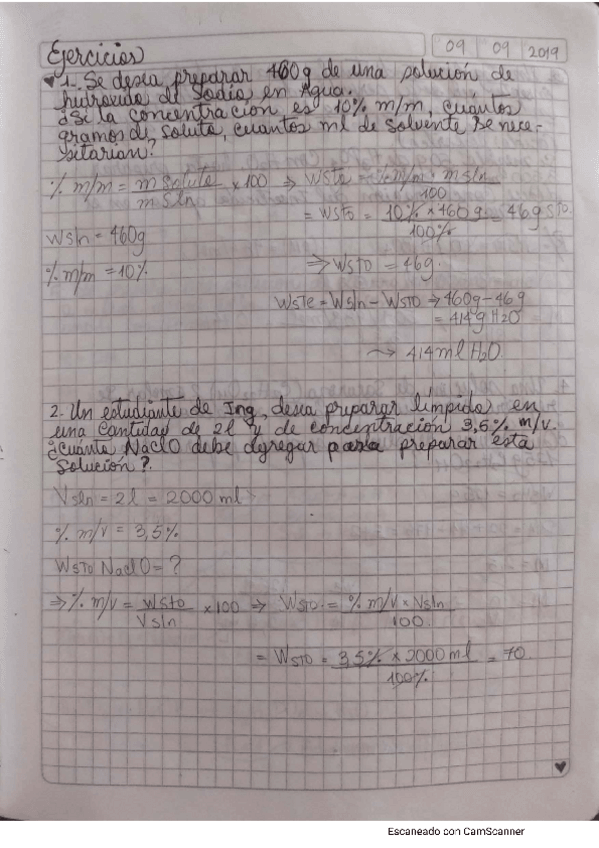 Ejercicios
09 09 2019
♥ 1. Se desea preparar 460g de una solución de
hidroxido de Sodio en Agua.
¿Si la concentración es 10% m/m, cuántos
gramos de soluto, cuantos ml de solvente se nece-
sitarian?
% m/m = m soluto / m sln × 100 ⇒ WSTO = % m/m × m sln / 100
= WSTO = 10% × 460g / 100% = 46g STO
Wsln = 460g
% m/m = 10%
⇒ WSTO = 46g.
WSTe = Wsln - WSTO → 460g - 46g
= 414g H2O
→ 414 ml H2O
2. Un estudiante de Ing, desea preparar límpido en
una cantidad de 2l y de concentración 3,5% m/v.
¿Cuánto NaClO debe agregar para preparar esta
Solución?.
Vsln = 2l = 2000 ml
% m/v = 3,5%
WSTO NaClO = ?
⇒ % m/v = WSTO / Vsln × 100 ⇒ WSTO = % m/v × Vsln / 100.
= WSTO = 3,5% × 2000 ml / 100% = 70.
♥
Escaneado con CamScanner